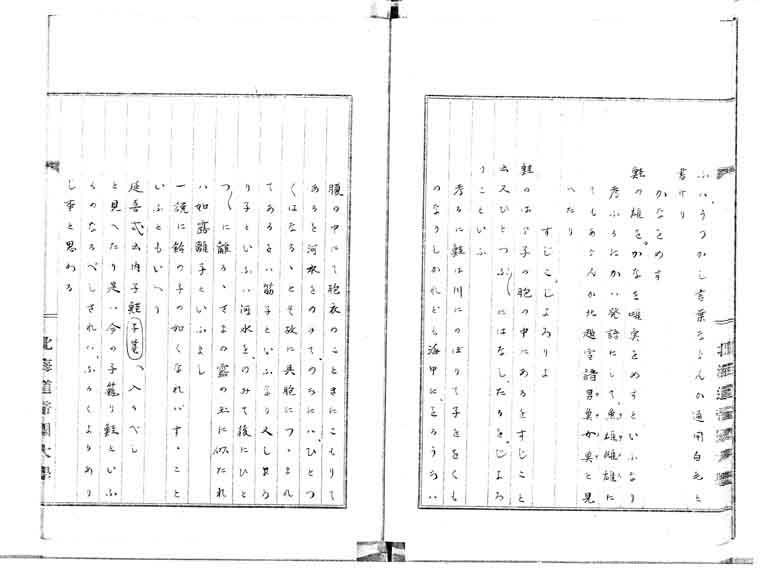 ふハうつかし言葉ならんか通用白毛と
書けり
かなをめす
鮭の雄をかなを唯突をめすといふなり
考ふるにかハ発語にして魚雄雌雄に
てもあらんか北越雪譜男奠女奠と見
へたり
すじこしよろりよ
鮭のはらゝ子の胞の中にあるをすじこと
云又ひとつぶ〳〵にはなしたるをしよろ
りこといふ
考るに鮭は川にのぼりて子をゝくも
のなりしかれども海中にとろうるハ
腹の中にて胞衣のことまにこもりて
あると河水をのめてのちにハひとつ
くはなるゝとぞ故に其胞につゝまれ
てあるをハ筋子といふなり又しよろ
り子といふハ河水をのみて後にひと
つ〳〵に離るゝさまの露の玉に似たれ
ハ如露離子といふよし
一説に鈴の子の如くなれバすゝこと
いふともいへり
延喜式云内子鮭子籠ヽ入ヽべし
と見へたり是ハ今の子籠り鮭といふ
ものなるべしされハふるくよりあり
し事と思わる
北海道帝国大学